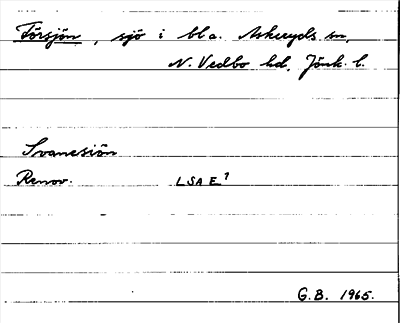 Försjön, sjö i bl a. Askeryds sn,
N. Vedbo hd, Jönk. l.
Svanesiön
Renov. LSA E 1
G.B. 1965.